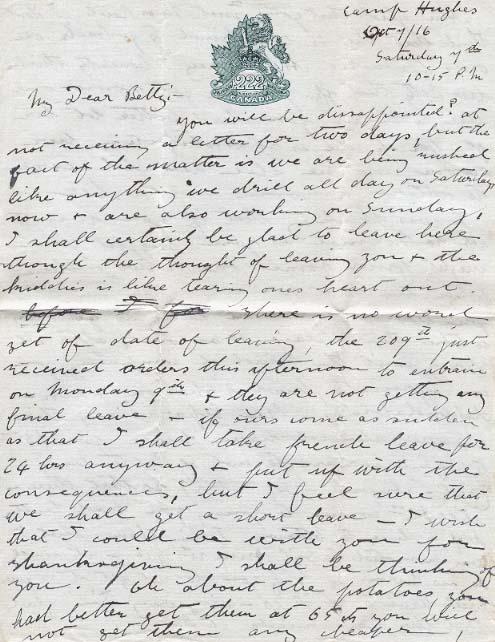 Camp Hughes
Oct 7/16
Saturday 7th
10-15 P.M
222
CANADA
My Dear Betty:-
You will be dissappointed? at
not receiving a letter for two days, but the
fact of the matter is we are being rushed
like anything we drill all day on Saturday
now + are also working on Sunday,
I shall certainly be glad to leave here
though the thought of leaving you + the
kiddies is like tearing ones heart out.
before I for There is no word
yet of date of leaving, the 209th just
received orders this afternoon to entrain
on Monday 9th + they are not getting any
final leave - if ours come as sudden
as that I shall take french leave for
24 hrs anyway + put up with the
consequences, but I feel sure that
we shall get a short leave - I wish
that I could be with you for
thanksgiving I shall be thinking of
you. Oh about the potatoes you
had better get them at 65 cts you will
not get them any cheaper